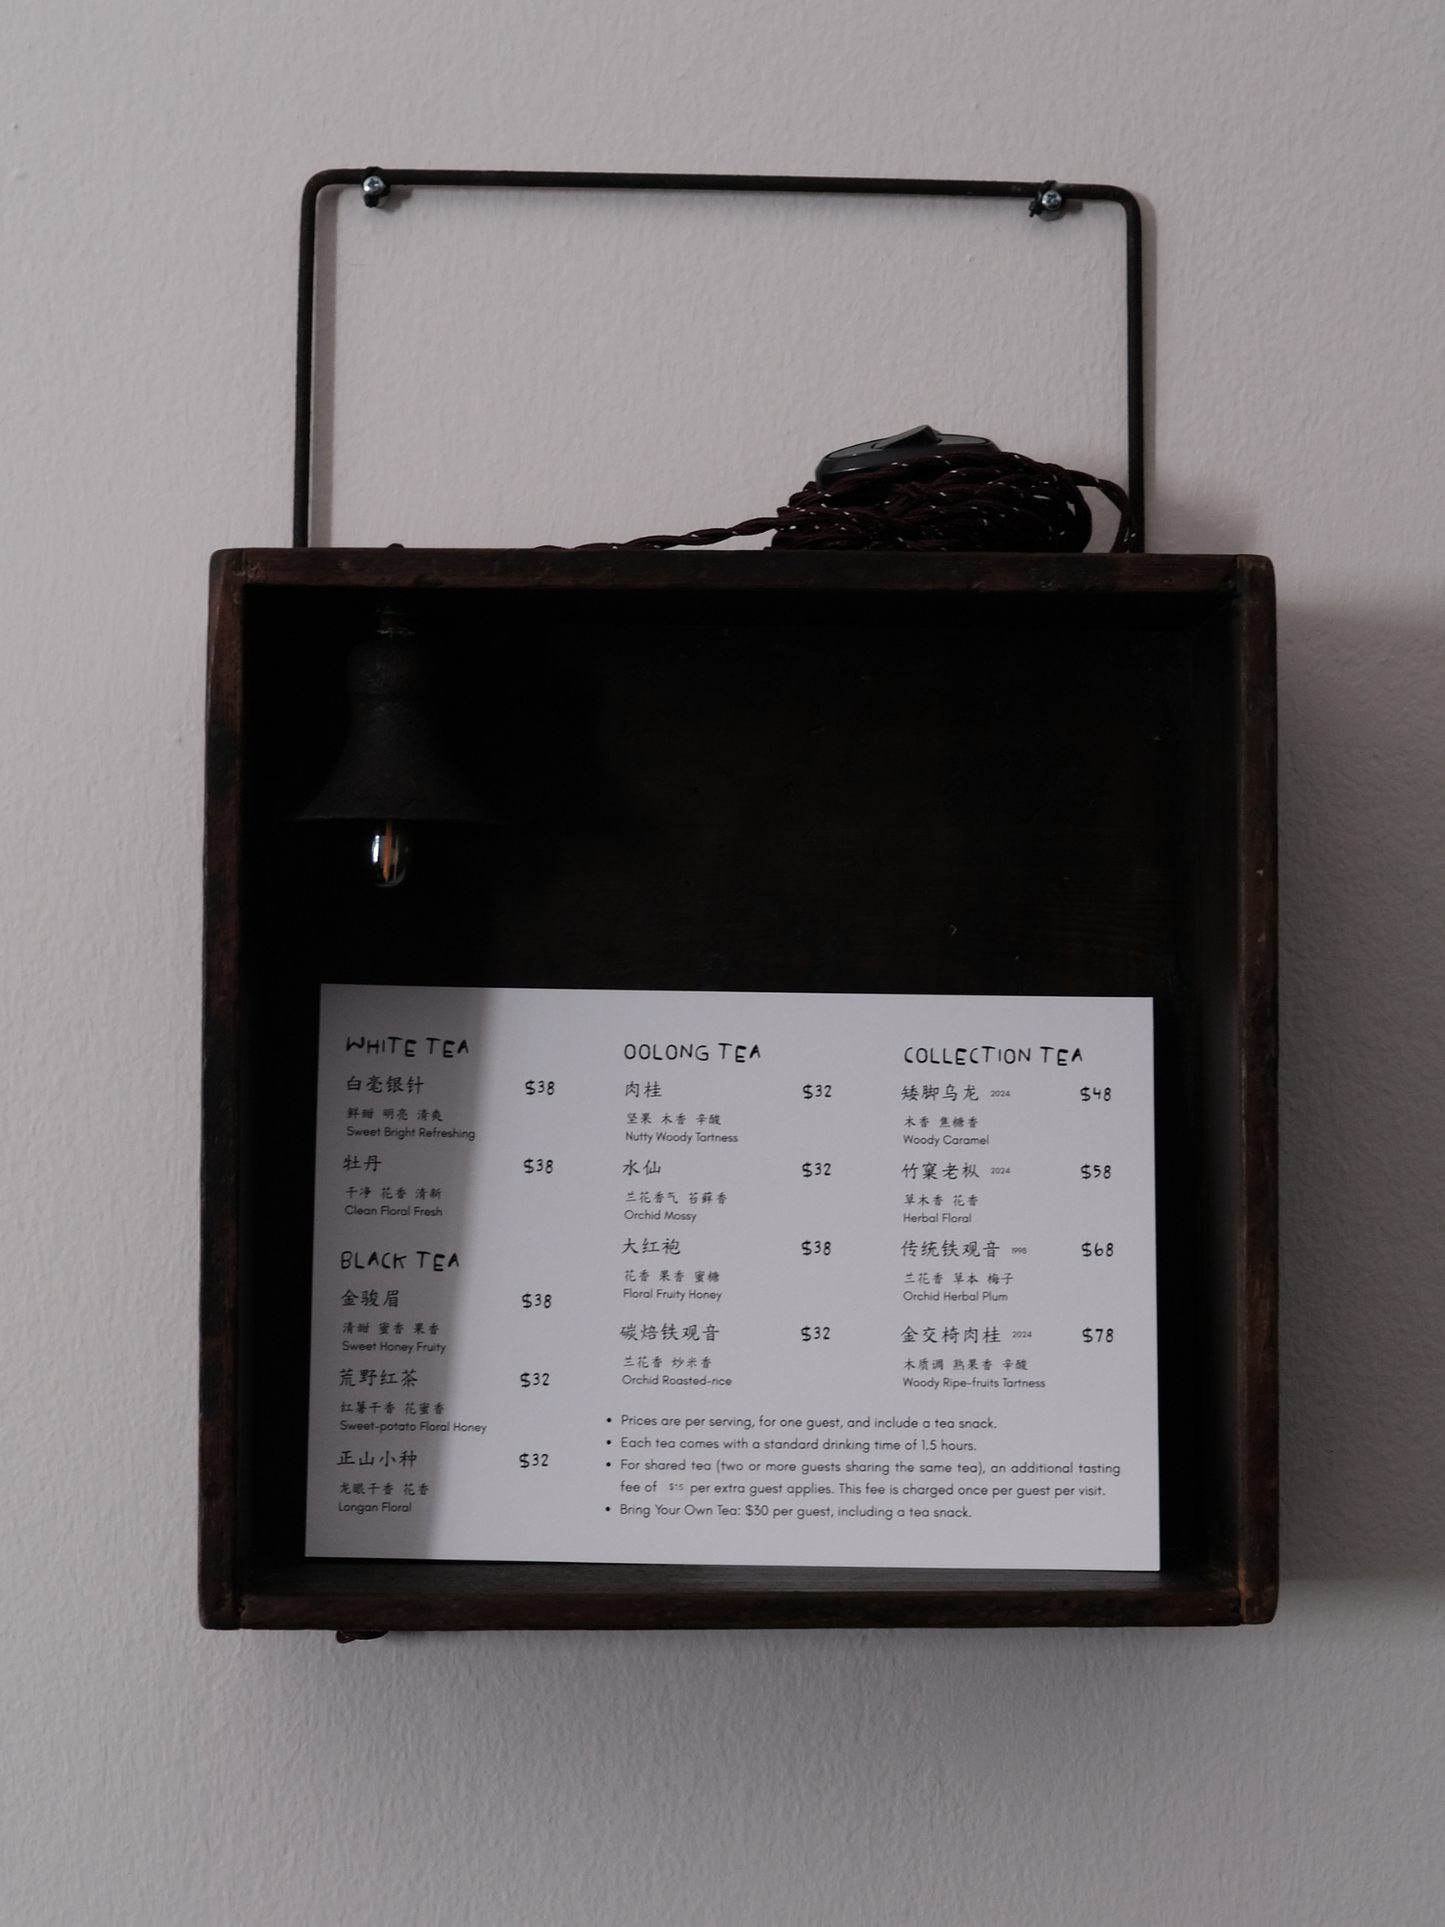 WHITE TEA
白毫银针 $38
鲜甜 明亮 清爽
Sweet Bright Refreshing
牡丹 $38
干净 花香 清新
Clean Floral Fresh
BLACK TEA
金骏眉 $38
清甜 蜜香 果香
Sweet Honey Fruity
荒野红茶 $32
红薯干香 花蜜香
Sweet-potato Floral Honey
正山小种 $32
龙眼干香 花香
Longan Floral
OOLONG TEA
肉桂 $32
坚果 木香 辛酸
Nutty Woody Tartness
水仙 $32
兰花香气 苔藓香
Orchid Mossy
大红袍 $38
花香 果香 蜜糖
Floral Fruity Honey
碳焙铁观音 $32
兰花香 炒米香
Orchid Roasted-rice
COLLECTION TEA
矮脚乌龙 2024 $48
木香 焦糖香
Woody Caramel
竹窠老枞 2024 $58
草木香 花香
Herbal Floral
传统铁观音 1998 $68
兰花香 草本 梅子
Orchid Herbal Plum
金交椅肉桂 2024 $78
木质调 熟果香 辛酸
Woody Ripe-fruits Tartness
• Prices are per serving, for one guest, and include a tea snack.
• Each tea comes with a standard drinking time of 1.5 hours.
• For shared tea (two or more guests sharing the same tea), an additional tasting
fee of $15 per extra guest applies. This fee is charged once per guest per visit.
• Bring Your Own Tea: $30 per guest, including a tea snack.